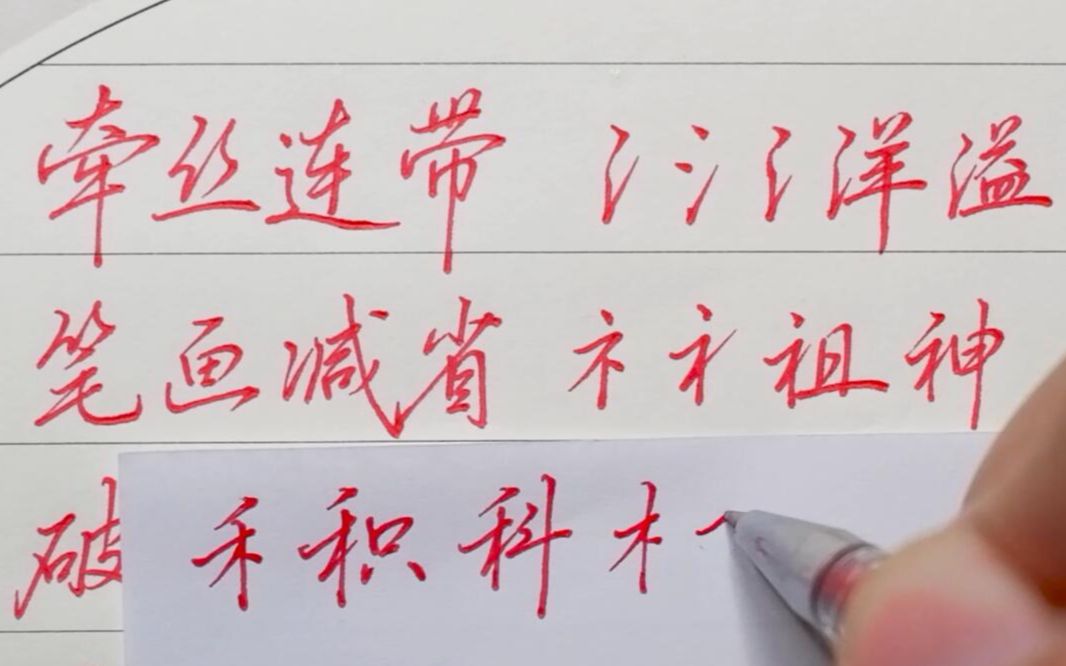 牵丝连带 氵氵氵洋溢
笔画减省 礻礻祖神
破
禾积科木